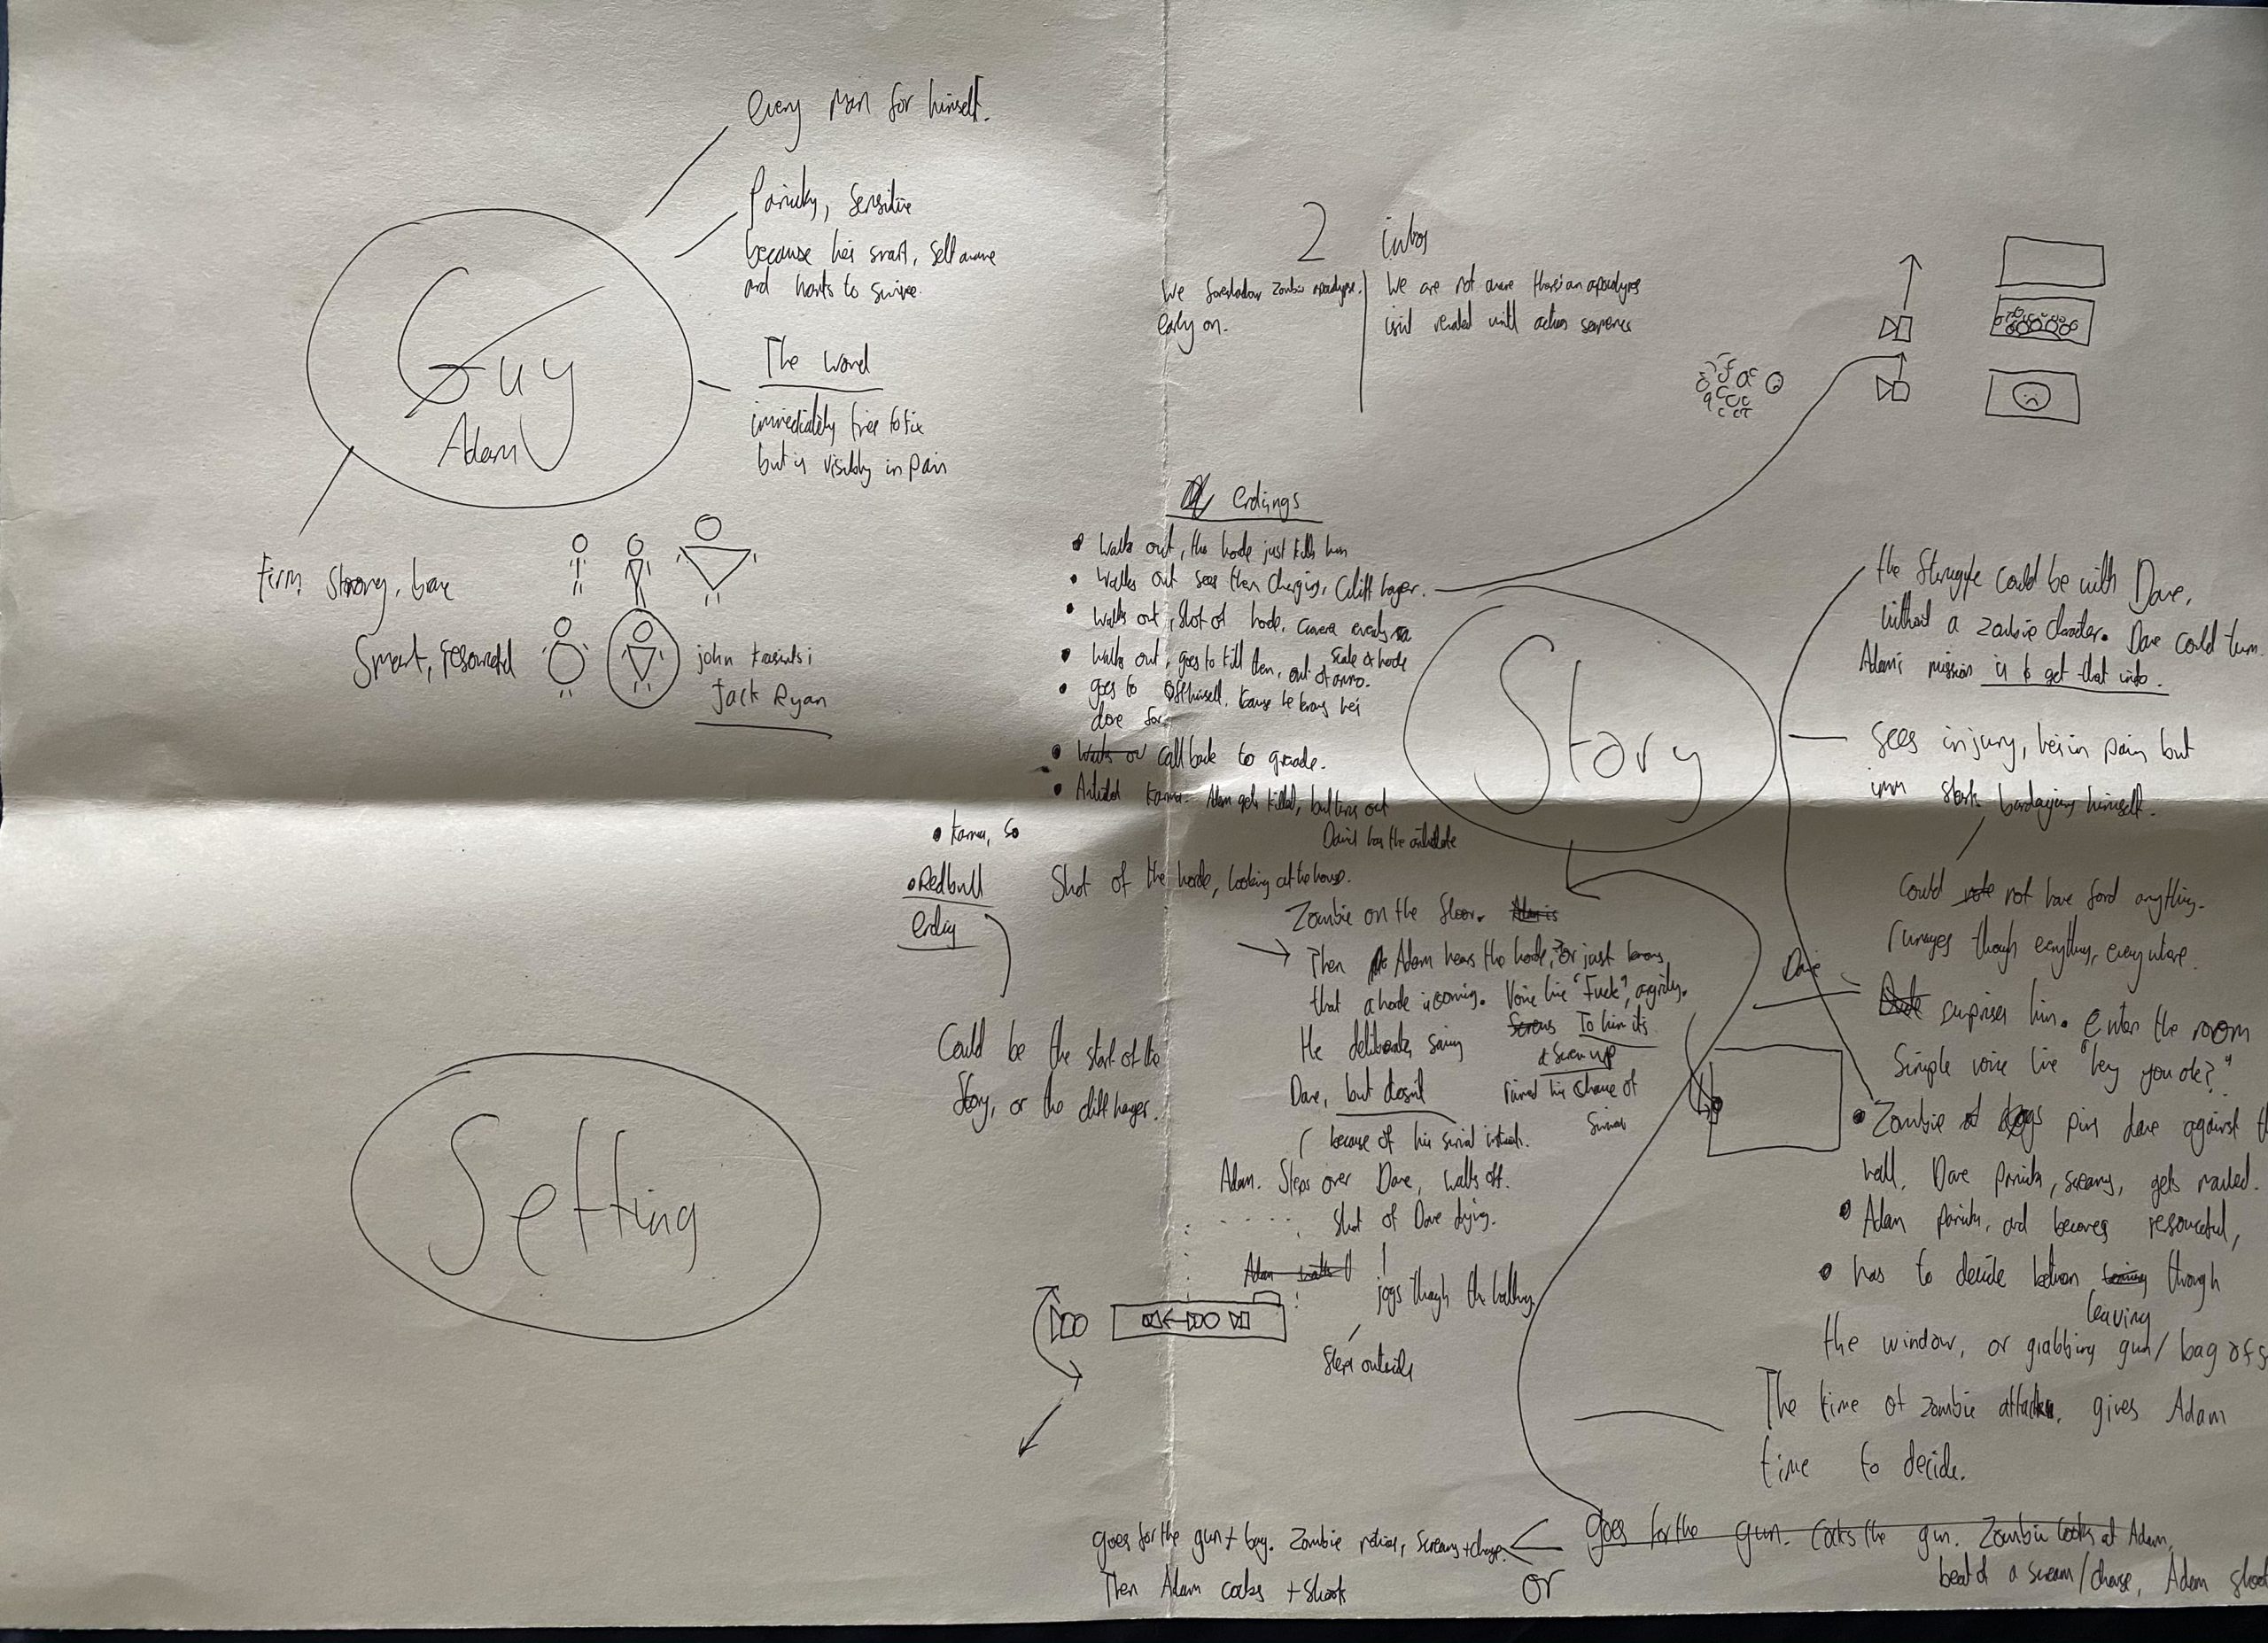 every man for himself.
Panicky, sensitive
because he's smart, self aware
and wants to survive.
Guy
Adam
The wound
immediately tries to fix
but is visibly in pain
Firm, strong, brave
Smart, resourceful
john
Jack Ryan
2 intros
We foreshadow zombie apocalypse
early on.
We are not aware there's an apocalypse
until action sequence
endings
Walks out, the horde just kills him
Walks out sees them charging, Cliff hanger.
Walks out, shot of horde, camera
scale of horde
Walks out, goes to kill them, out of ammo.
goes to off himself. Cause he knows he's
done for.
Walks ou call back to grenade.
karma. Adam gets killed, but turns out
David has the antidote
Karma, so
Redbull
ending
Could be the start of the
Story, or the cliff hanger.
Story
Shot of the horde, looking at the house.
Zombie on the floor. Adam is
Then Adam hears the horde, or just knows
that a horde is coming. Voice line "Fuck", angrily.
He deliberates saving
Dave, but doesn't
To him its
a screw up
ruined his chance of
because of his
Adam. Steps over Dave, walks off.
Shot of Dave dying.
Adam walks
jogs though the hallway
Steps outside
Setting
the struggle could be with Dave,
without a zombie character. Dave could turn.
Adam's mission is to get that into.
Sees injury, he's in pain but
imm starts bandaging himself.
Could not have found anything.
rumages though everything, everywhere.
Dave
surprises him. Enter the room
Simple voice line "hey you ok?"
Zombie pins dave against th
wall. Dave panicks, screams, gets mauled.
Adam panicks, and becomes resourceful,
has to decide between leaving through
the window, or grabbing gun / bag of s
The time of zombie attack, gives Adam
time to decide.
goes for the gun. Cocks the gun. Zombie looks at Adam,
beat of a scream/charge, Adam shoot
OR
goes for the gun + bag. Zombie notices, screams + charge.
Then Adam cocks + shoots